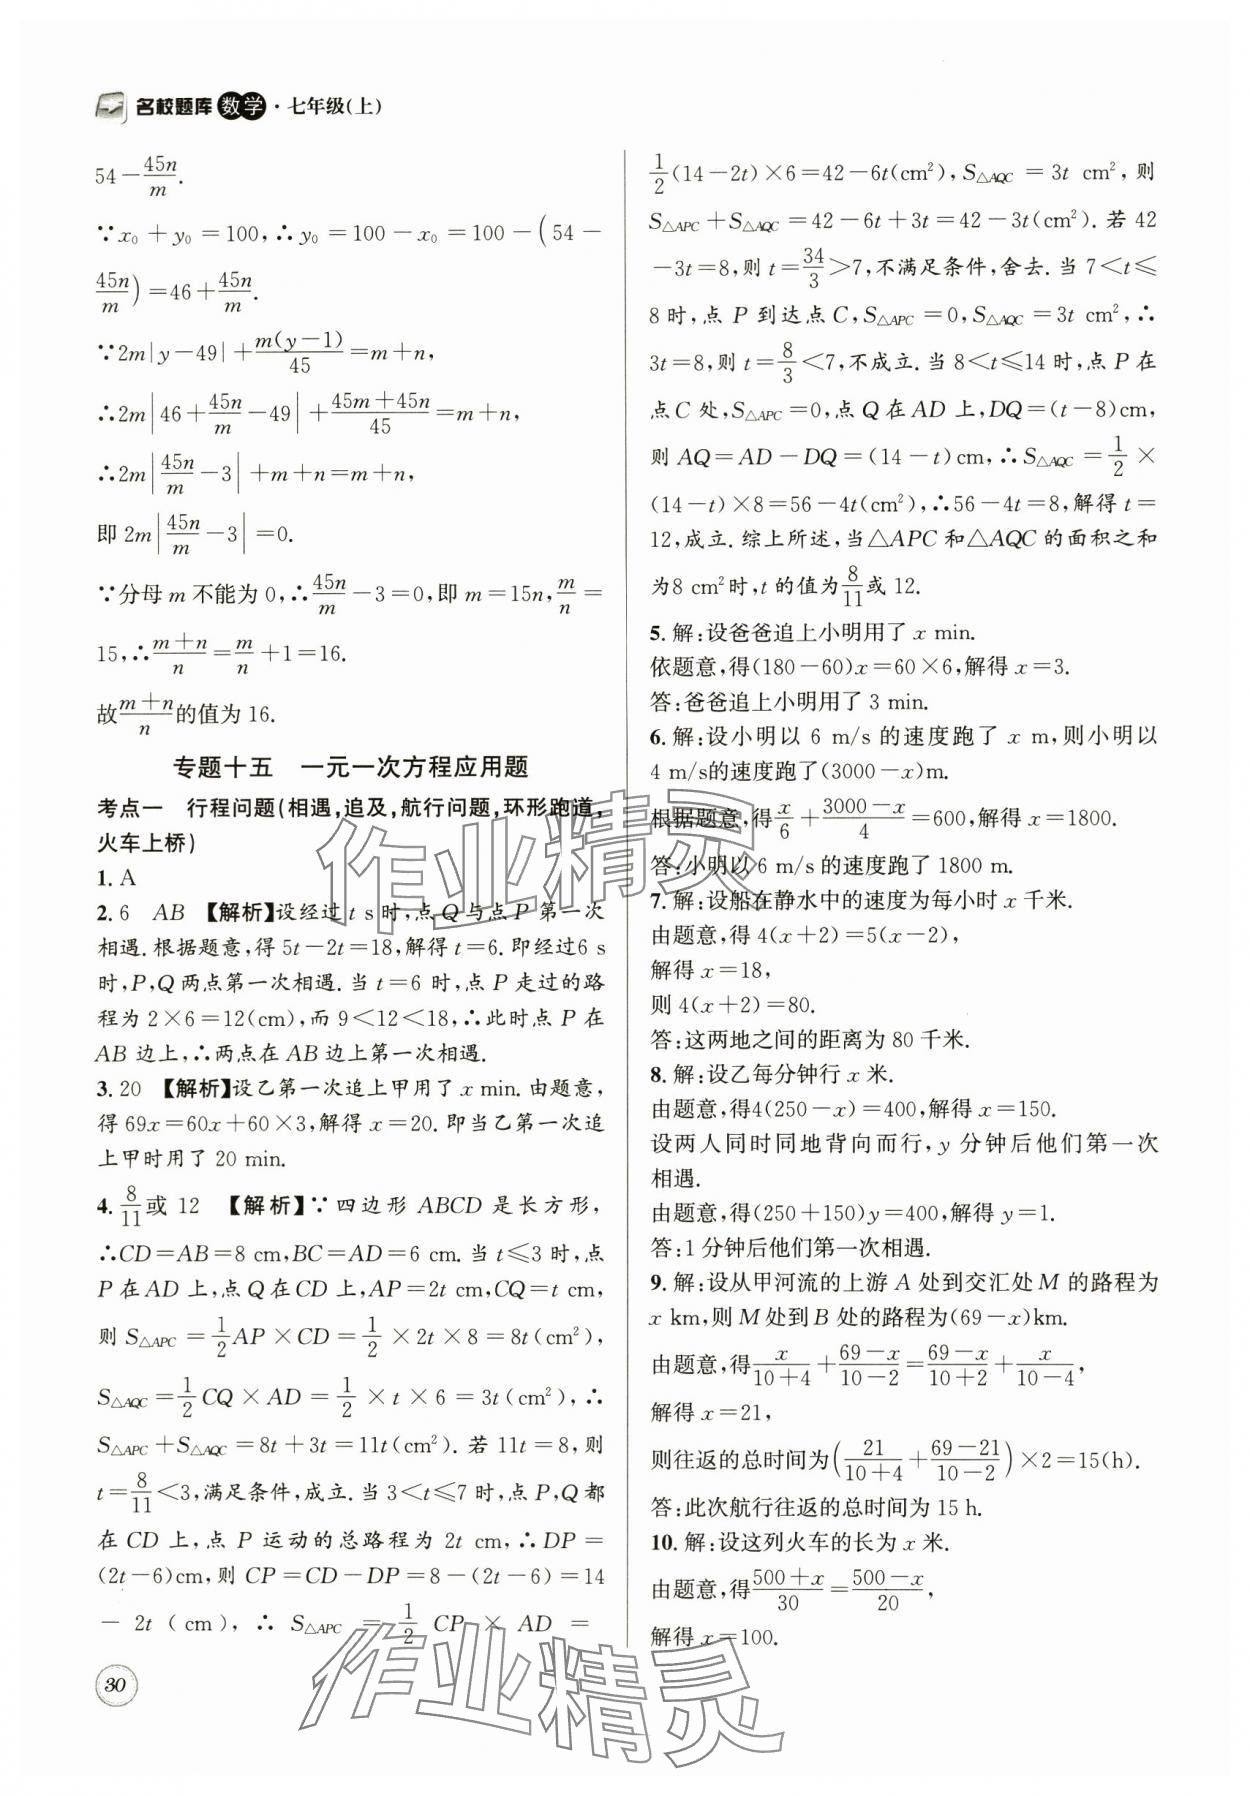 名校题库 数学·七年级(上)
54－45n/m.
∵x₀＋y₀＝100,∴y₀＝100－x₀＝100－(54－
45n/m)＝46＋45n/m.
∵2m|y－49|＋m(y－1)/45＝m＋n,
∴2m|46＋45n/m－49|＋(45m＋45n)/45＝m＋n,
∴2m|45n/m－3|＋m＋n＝m＋n,
即 2m|45n/m－3|＝0.
∵分母 m 不能为 0,∴45n/m－3＝0,即 m＝15n,m/n＝
15,∴(m＋n)/n＝m/n＋1＝16.
故(m＋n)/n的值为 16.
专题十五 一元一次方程应用题
考点一 行程问题(相遇,追及,航行问题,环形跑道,
火车上桥)
1. A
2. 6 AB 【解析】设经过 t s时,点 Q 与点 P 第一次
相遇.根据题意,得 5t－2t＝18,解得 t＝6.即经过6 s
时,P,Q 两点第一次相遇.当 t＝6 时,点 P 走过的路
程为 2×6＝12(cm),而 9＜12＜18,∴此时点 P 在
AB 边上,∴两点在 AB 边上第一次相遇.
3. 20 【解析】设乙第一次追上甲用了 x min.由题意,
得 69x＝60x＋60×3,解得 x＝20.即当乙第一次追
上甲时用了 20 min.
4. 8/11或 12 【解析】∵四边形 ABCD 是长方形,
∴CD＝AB＝8 cm,BC＝AD＝6 cm.当 t≤3 时,点
P 在 AD 上,点 Q 在 CD 上,AP＝2t cm,CQ＝t cm,
则 S△APC＝1/2AP×CD＝1/2×2t×8＝8t(cm²),
S△AQC＝1/2CQ×AD＝1/2×t×6＝3t(cm²),∴
S△APC＋S△AQC＝8t＋3t＝11t(cm²).若 11t＝8,则
t＝8/11＜3,满足条件,成立.当 3＜t≤7 时,点 P,Q 都
在 CD 上,点 P 运动的总路程为 2t cm,∴DP＝
(2t－6)cm,则 CP＝CD－DP＝8－(2t－6)＝14
－2t(cm),∴S△APC＝1/2CP×AD＝
30
1/2(14－2t)×6＝42－6t(cm²),S△AQC＝3t cm²,则
S△APC＋S△AQC＝42－6t＋3t＝42－3t(cm²).若 42
－3t＝8,则 t＝34/3＞7,不满足条件,舍去.当 7＜t≤
8 时,点 P 到达点 C,S△APC＝0,S△AQC＝3t cm²,∴
3t＝8,则 t＝8/3＜7,不成立.当 8＜t≤14 时,点 P 在
点C 处,S△APC＝0,点 Q 在 AD 上,DQ＝(t－8)cm,
则 AQ＝AD－DQ＝(14－t)cm,∴S△AQC＝1/2×
(14－t)×8＝56－4t(cm²),∴56－4t＝8,解得 t＝
12,成立.综上所述,当△APC 和△AQC 的面积之和
为8 cm²时,t 的值为8/11或 12.
5. 解:设爸爸追上小明用了 x min.
依题意,得(180－60)x＝60×6,解得 x＝3.
答:爸爸追上小明用了 3 min.
6. 解:设小明以 6 m/s 的速度跑了 x m,则小明以
4 m/s的速度跑了(3000－x)m.
根据题意,得x/6＋(3000－x)/4＝600,解得 x＝1800.
答:小明以 6 m/s 的速度跑了 1800 m.
7. 解:设船在静水中的速度为每小时 x 千米.
由题意,得 4(x＋2)＝5(x－2),
解得 x＝18,
则 4(x＋2)＝80.
答:这两地之间的距离为 80 千米.
8. 解:设乙每分钟行 x 米.
由题意,得4(250－x)＝400,解得 x＝150.
设两人同时同地背向而行,y 分钟后他们第一次
相遇.
由题意,得(250＋150)y＝400,解得 y＝1.
答:1 分钟后他们第一次相遇.
9. 解:设从甲河流的上游 A 处到交汇处 M 的路程为
x km,则 M 处到 B 处的路程为(69－x)km.
由题意,得x/(10＋4)＋(69－x)/(10－2)＝(69－x)/(10＋2)＋x/(10－4),
解得 x＝21,
则往返的总时间为(21/(10＋4)＋(69－21)/(10－2))×2＝15(h).
答:此次航行往返的总时间为 15 h.
10. 解:设这列火车的长为 x 米.
由题意,得(500＋x)/30＝(500－x)/20,
解得 x＝100.
作业精灵
作业精灵